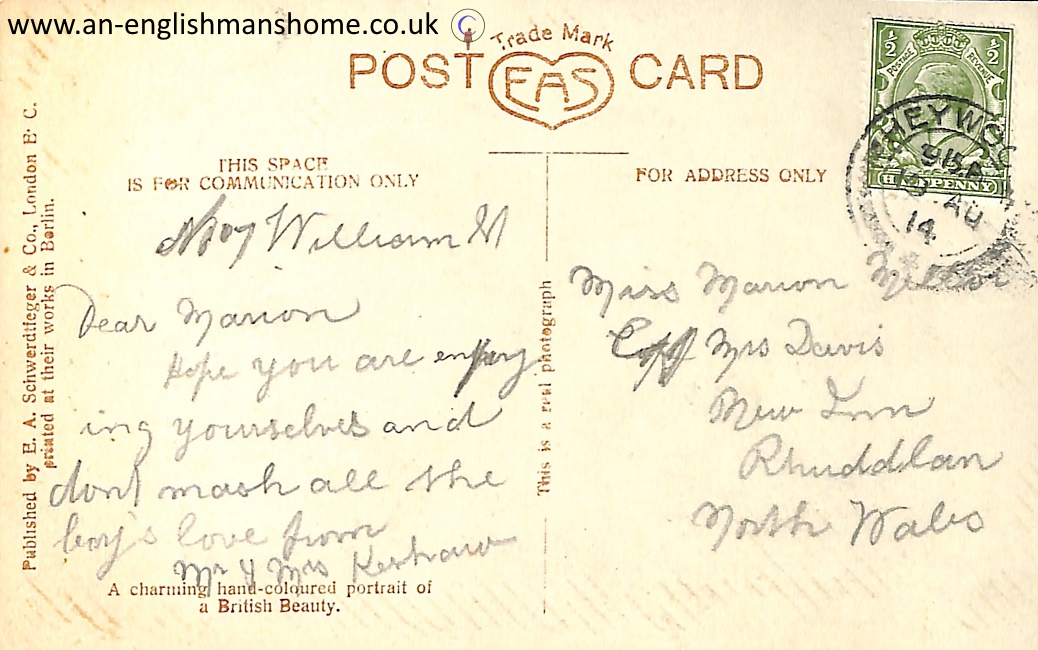 www.an-englishmanshome.co.uk
Trade Mark
POST EAS CARD
THIS SPACE
IS FOR COMMUNICATION ONLY
FOR ADDRESS ONLY
Published by E. A. Schwerdtfeger & Co., London E. C.
printed at their works in Berlin.
107 William St
Dear Marion
Hope you are enjoy
ing yourselves and
dont mash all the
boy's love from
Mr & Mrs Kershaw
A charming hand-coloured portrait of
a British Beauty.
This is a real photograph
½ ½
POSTAGE REVENUE
HALFPENNY
HEYWOO
9 15 A
AU
14
Miss Marion Mellor
C/o Mrs Davis
New Inn
Rhuddlan
North Wales